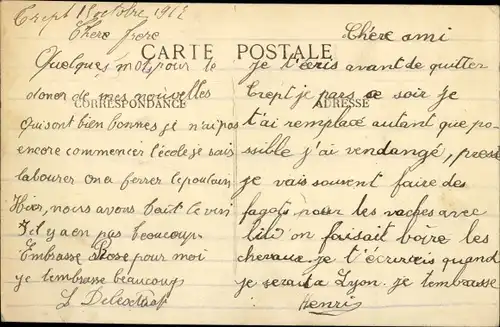 Crept 18 octobre 1912
Chère frere
CARTE POSTALE
CORRESPONDANCE
Quelques mots pour te
donor de mes nouvelles
qui sont bien bonnes je n'ai pas
encore commencer l'école je vais
labourer on a ferrer le poulain
Hier, nous avons fait le vin
il y a en pas beaucoup.
Embrasse Rose pour moi
je tembrasse beaucoup
ADRESSE
Chère ami
je t'écris avant de quitter
Crept je pars ce soir je
t'ai remplacé autant que po-
ssible j'ai vendangé, pressé
je vais souvent faire des
fagots pour les vaches avec
lili on faisait boire les
chevaux je t'écrirais quand
je serai a Lyon. je tembrasse
Henri